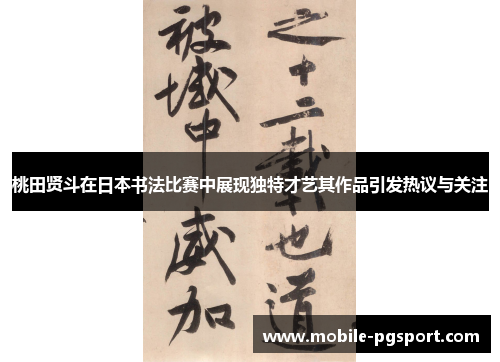 之十二載也道
被域中威加
桃田贤斗在日本书法比赛中展现独特才艺其作品引发热议与关注
www.mobile-pgsport.com